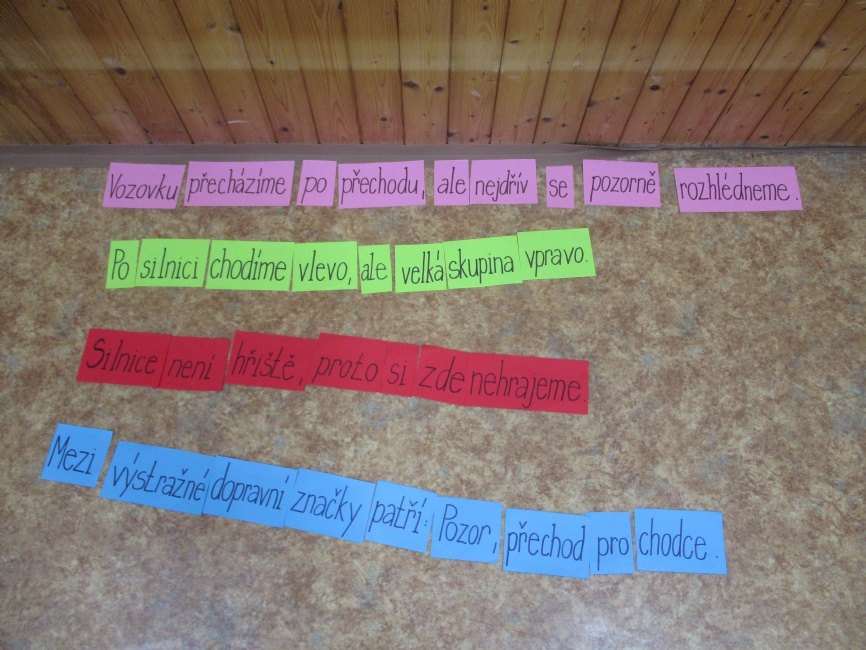 Vozovku přecházíme po přechodu, ale nejdřív se pozorně rozhlédneme.
Po silnici chodíme vlevo, ale velká skupina vpravo.
Silnice není hřiště, proto si zde nehrajeme.
Mezi výstražné dopravní značky patří: Pozor, přechod pro chodce.